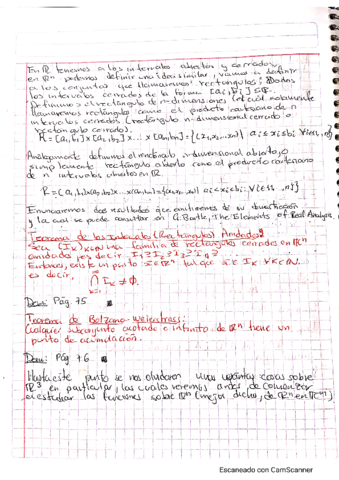 En ℝ tenemos a los intervalos abiertos y cerrados,
en ℝⁿ podemos definir una idea similar, vamos a definir
a los conjuntos que llamaremos rectangulos: Dados
los intervalos cerrados de la forma [ai, bi] ⊆ ℝ.
Definimos el rectángulo de n-dimensiones (el cual solamente
llamaremos rectángulo) como el producto cartesiano de n
intervalos cerrados. (rectángulo n-dimensional cerrado o
rectangulo cerrado).
R = [a1,b1] x [a2,b2] x... x [an,bn] = {(x1,x2,...xn)| ai ≤ xi ≤ bi ∀i∈{1,..,n}}
Analogamente definimos el rectángulo n-dimensional abierto, o
simplemente rectángulo abierto como el producto cartesiano
de n intervalos abiertos en ℝ.
R = (a1,b1)x(a2,b2)x...x(an,bn) = {(x1,x2,..,xn)| ai < xi < bi ; ∀i∈{1,..,n}}
Enunciaremos dos resultados que omitiremos de su demostración
y la cual se puede consultar en G. Bartle, The Elements of Real Analysis.
Teorema de los Intervalos (Rectángulos) Anidados:
Sea (Ik)k∈ℕ una familia de rectángulos cerrados en ℝⁿ
anidados, es decir, I1 ⊇ I2 ⊇ I3 ⊇ I4 ⊇
Entonces, existe un punto x̄ ∈ ℝⁿ tal que x̄ ∈ Ik ∀k∈ℕ.
es decir,
∞
⋂ Ik ≠ Ø.
k=1
Dem: Pág. 75
Teorema de Bolzano-Weierstrass:
Cualquier subconjunto acotado e infinito de ℝⁿ tiene un
punto de acumulación.
Dem: Pág 76
Hasta este punto se nos olvidaron unas cosas sobre
ℝ³ en particular, las cuales veremos antes de comenzar
a estudiar las funciones sobre ℝⁿ (mejor dicho, de ℝⁿ en ℝᵐ).
Escaneado con CamScanner